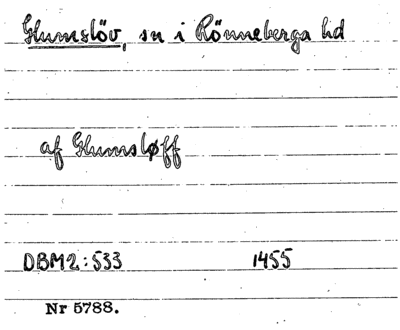 Glumslöv, sn i Rönneberga hd
af Glumsløff
DBM2:533 1455
Nr 5788.